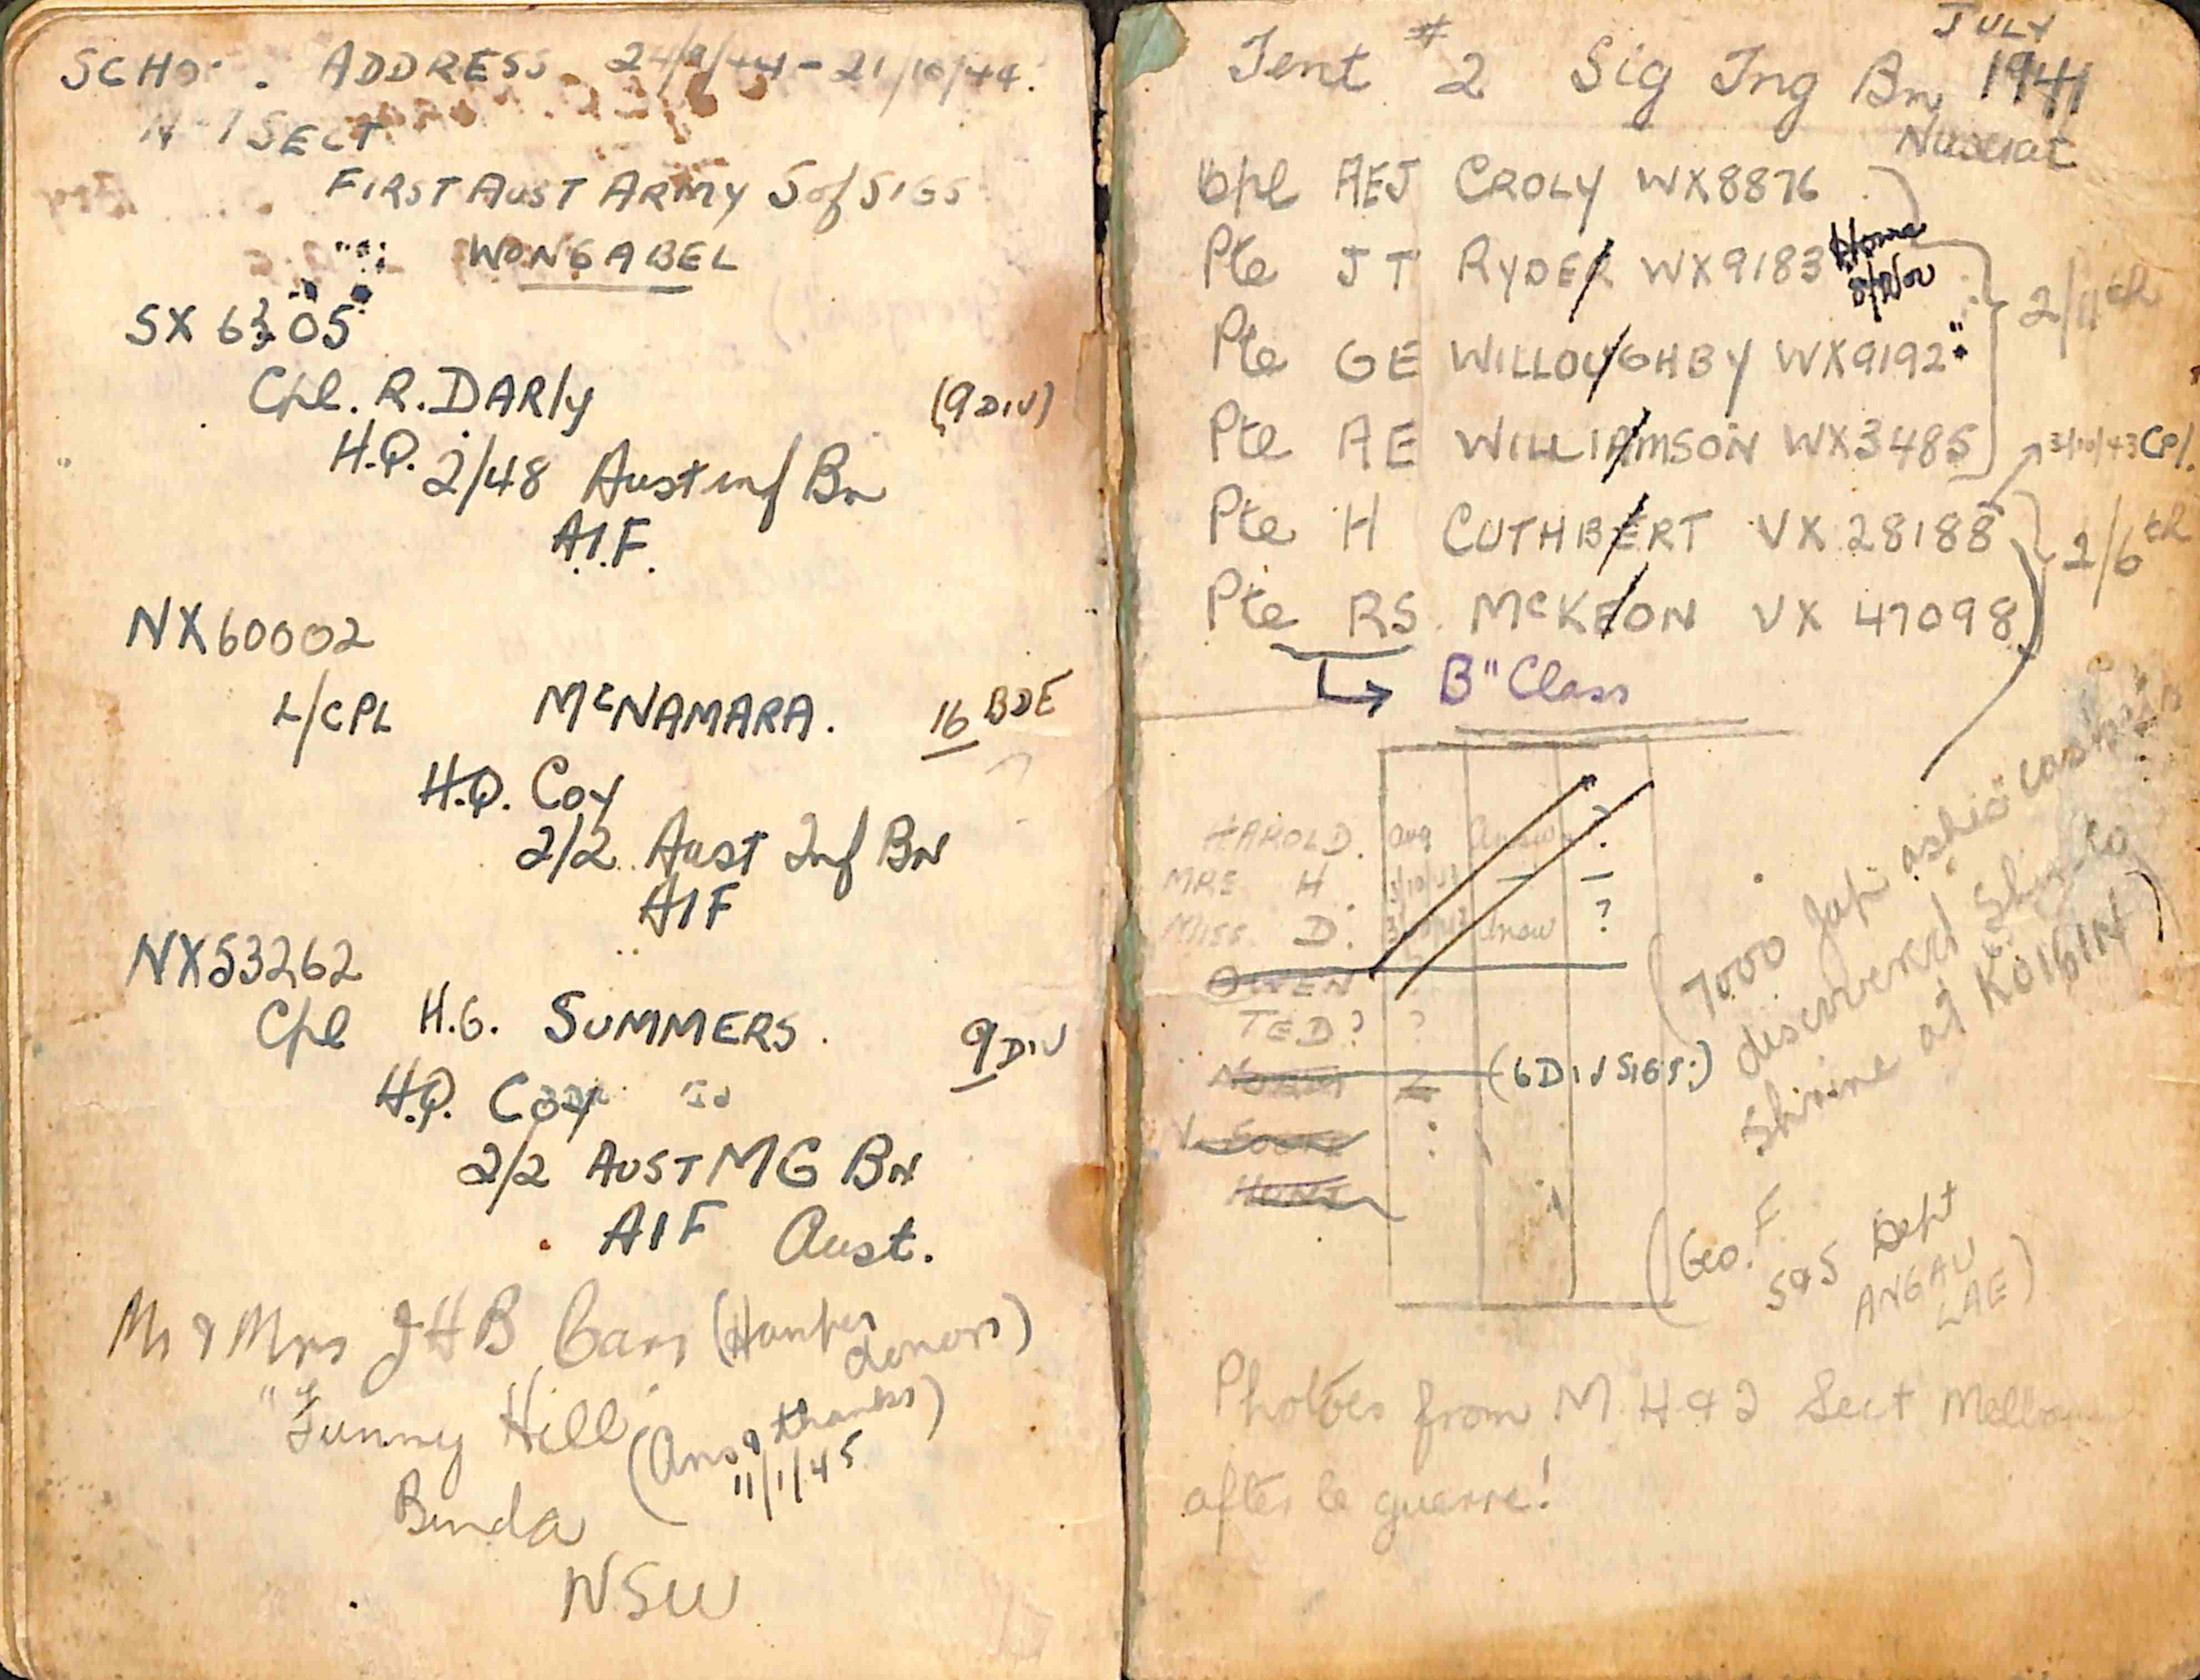 ADDRESS 24/9/44 - 21/10/44.
No 1 SECT
FIRST AUST ARMY S of SIGS
WONGABEL
SX 6305
Cpl. R. DARly (9 DIV)
H.Q. 2/48 Aust inf Bn
A.I.F.
NX60002
L/CPL McNAMARA. 16 BDE
H.Q. Coy
2/2 Aust Inf BN
AIF
NX53262
Cpl H.G. SUMMERS. 9 DIV
H.Q. Coy
2/2 AUST MG BN
AIF Aust.
Mr & Mrs J H B (Hamper donors)
"Funny Hill"
(Ans & thanks) 11/1/45
Binda
NSW
JULY
Tent #2 Sig Tng Bn 1941
Nuseirat
Cpl AEJ CROLY WX8876
Pte J T RYDER WX9183 Home
2/11th
Pte GE WILLOUGHBY WX9192 "
Pte AE WILLIAMSON WX3485
3/10/43 Cpl.
Pte H CUTHBERT VX 28188
2/6th
Pte RS McKEON VX 47098
B" Class
HAROLD. Aug
MRS H. 3/10/43 — —
MISS D. ?
OWEN
TED? ?
NORM (6 DIV SIGS.)
HUNT
(7000 Jap ashie caskets
discovered
Shrine at KOIBIN)
(Geo. F.
S & S Dept
ANGAU
LAE)
Photoes from M. H & 2 Sect
after le guerre!